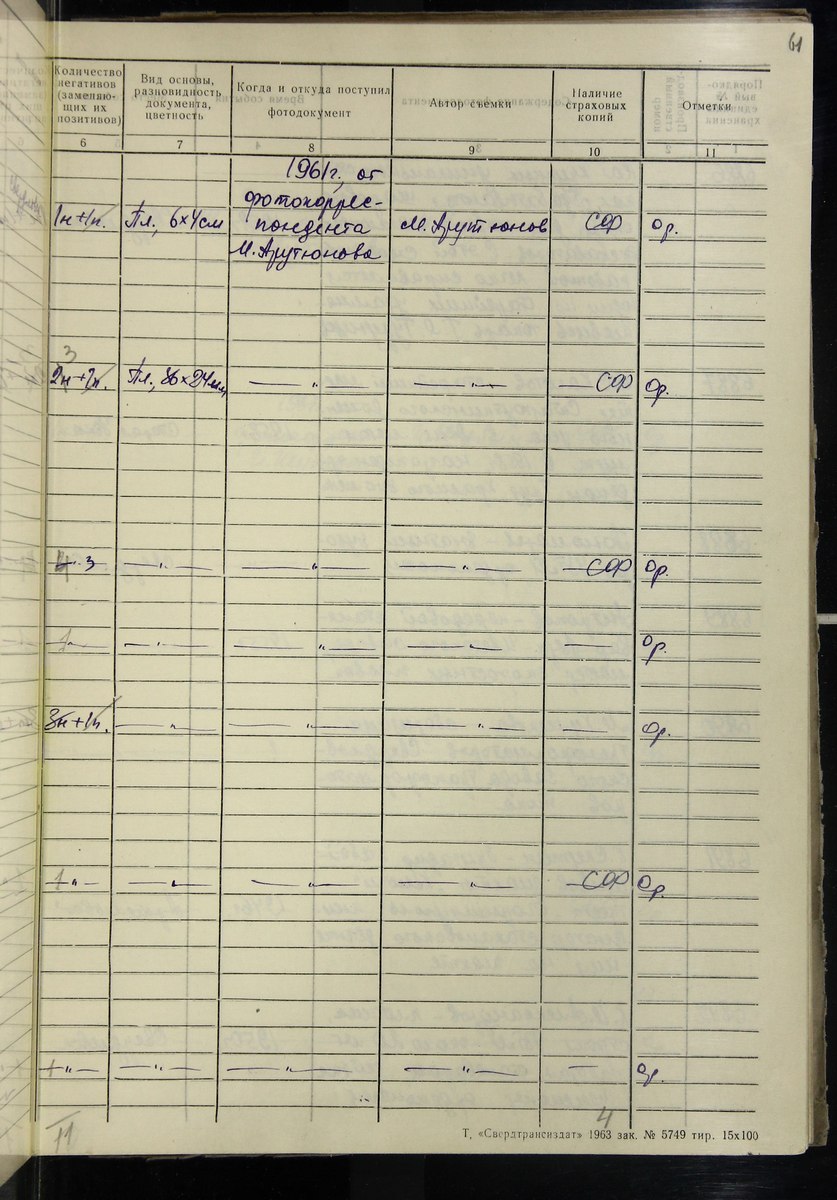 61
Количество негативов (заменяю-щих их позитивов)
Вид основы, разновидность документа, цветность
Когда и откуда поступил фотодокумент
Автор съемки
Наличие страховых копий
Отметки
6 7 8 9 10 11
1961г., от
фотокоррес-
1н+1п. Пл., 6×4см пондента М. Арутюнов СФ Ор.
М. Арутюнова
3
2н+1п. Пл., 36×24мм — " — — " — СФ Ор.
3 — " — — " — — " — СФ Ор.
— " — — " — — " — — Ор.
3н+1п. — " — — " — — " — — Ор.
1 — " — — " — — " — — " — СФ Ор.
1 — " — — " — — " — — " — — Ор.
11
4
Т. «Свердтрансиздат» 1963 зак. № 5749 тир. 15х100